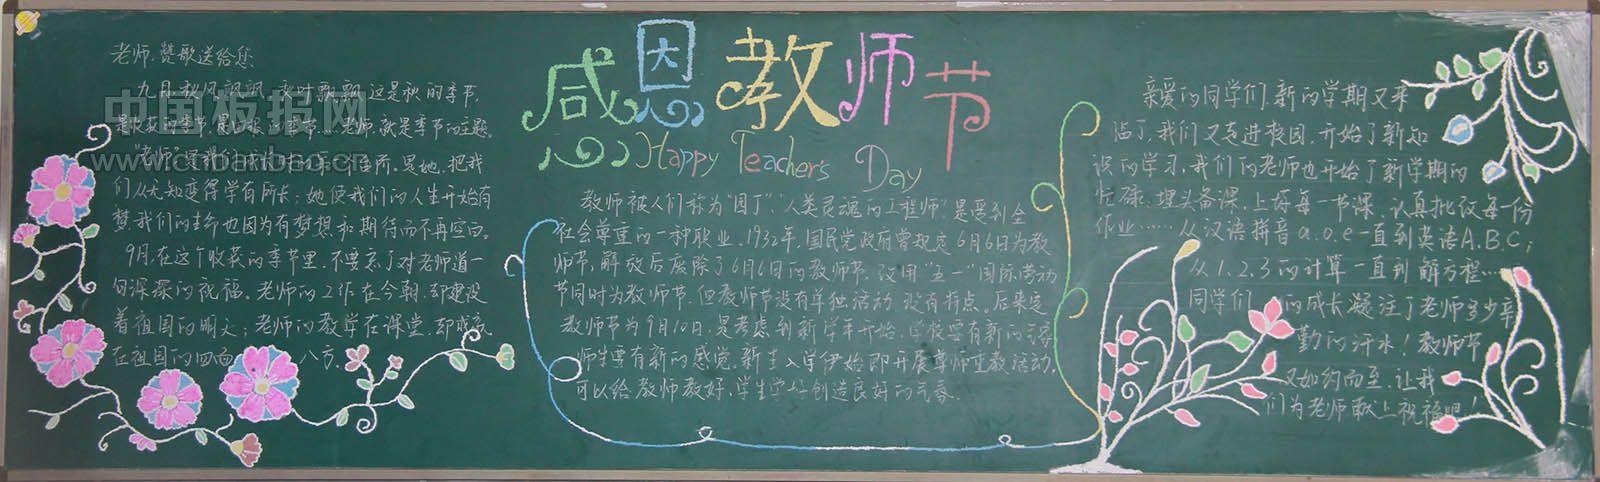 感恩教师节
Happy Teacher's Day
老师,赞歌送给您
九月,秋风飒飒,秋叶飘飘,这是秋的季节,
是收获的季节,是 季节,老师,就是季节的主题。
"老师"是我们成长时的 是她,把我
们从无知变得学有所长;她使我们的人生开始有
梦,我们的生命也因为有梦想和期待而不再空白。
9月,在这个收获的季节里,不要忘了对老师道一
句深深的祝福。老师的工作在今朝,却建设
着祖国的明天;老师的教学在课堂,却成就
在祖国的四面 八方。
教师被人们称为"园丁""人类灵魂的工程师",是受到全
社会尊重的一种职业。1932年,国民党政府曾规定6月6日为教
师节,解放后废除了6月6日的教师节,改用"五一"国际劳动
节同时为教师节,但教师节没有单独活动,没有特点。后来定
教师节为9月10日,是考虑到新学年开始,学校要有新的气象
师生要有新的感觉。新生入学伊始即开展尊师重教活动,
可以给教师教好、学生学好创造良好的气氛。
亲爱的同学们,新的学期又来
临了,我们又走进校园,开始了新知
识的学习,我们的老师也开始了新学期的
忙碌:埋头备课,上好每一节课,认真批改每一份
作业……从汉语拼音a.o.e一直到英语A.B.C;
从1.2.3的计算一直到解方程……
同学们 的成长凝注了老师多少辛
勤的汗水!教师节
又如约而至,让我
们为老师献上祝福吧!
中国板报网
www.cnbanbao.cn